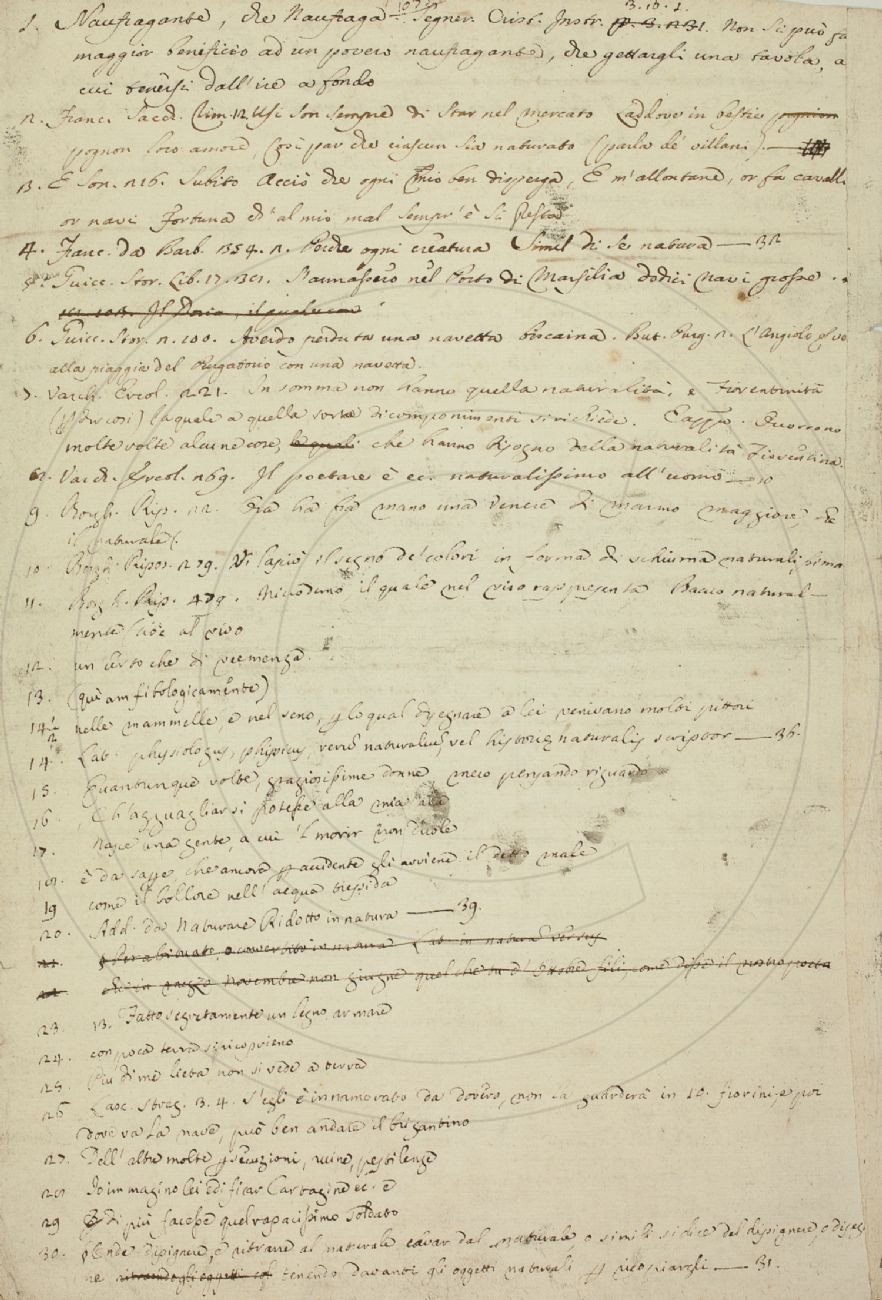 1. Naufragante, che Naufraga — Segner. Crist. Instr. 3. 10. 1. Non si può fa
maggior benificio ad un povero naufragante, che gettargli una tavola, a
cui tenersi dall'ire a fondo
2. Franc. Sacch. Rim. 12 Usi son sempre di star nel mercato Laddove in bestie
pognon loro amore, Così par che ciascun sia naturato (parla de' villani). —
3. E Son. 26. Subito acciò che ogni mio ben disperga, E m'allontane, or fa cavalli
or navi Fortuna ch'al mio mal sempr'è sì presta
4. Franc. da Barb. 354. 2. Perche ogni creatura Simil di se natura — 32
5. Guicc. Stor. Lib. 17. 301. Stavano nel Porto di Marsilia dodici navi grosse . .
Il Doria, il quale
6. Guicc. Stor. n. 100. Avendo perduta una navetta biscaina. But. Purg. 2. L'Angiolo
alla piaggia del Purgatorio con una navetta.
7. Varch. Ercol. 221. In somma non hanno quella naturalità, e Fiorentinità
(per dir così) la quale a quella sorte di componimenti si richiede. E appo. Occorrono
molte volte alcune cose, le quali che hanno bisogno della naturalità Fiorentina.
8. Varch. Ercol. 269. Il poetare è ec. naturalissimo all'uomo — 10
9. Borgh. Rip. 12. Fra ha fra mano una Venere di marmo maggiore, che
il naturale.
10. Borgh. Ripos. 279. Vi lasciò il segno de' colori in forma di schiuma naturalissima
11. Borgh. Rip. 479. Nicodemo il quale nel viso rappresenta Bacco natural-
mente cioè al vivo
12. un certo che di veemenza.
13. (quì amfibologicamente)
14. 1/2 nelle mammelle, e nel seno, per lo qual disegnare a lei venivano molti pittori
14. Lat. physiologus, physicus, rerum naturalium, vel historiae naturalis scriptor — 36.
15. Quantunque volte, graziosissime donne, meco pensando riguardo
16. Ch'agguagliar si potesse alla mia ala
17. Nasce una gente, a cui 'l morir non dole
18. è da sapere che amore per accidente gli avviene il detto male
19 come il bollore nell'acqua trepida
20. Add. da Naturare Ridotto in natura — 39.
21. Per abituato, o convertito in natura Lat. in naturam versus
22. ch'a mezzo novembre non giugne quel che tu d'ottobre fili, come disse il nostro poeta
23. 13. Fatto segretamente un legno armare
24. con poca terra si ricoprieno
25. Più di me lieta non si vede a terra
26 Lasc. Streg. 3. 4. S'egli è innamorato da dovero, non la guarderà in 10. fiorini, e poi
dove va la nave, può ben andare il brigantino
27. Dell'altre molte persecuzioni, ruine, pestilenze
28 Io immagino lei edificar Cartagine ec. e
29 E di più facesse quel rapacissimo soldato
30. Onde dipignere, e ritrarre al naturale cavar dal naturale o simili si dice del dipignere o disegna
re ritraendo gli oggetti tenendo davanti gli oggetti naturali per ricopiargli — 31.